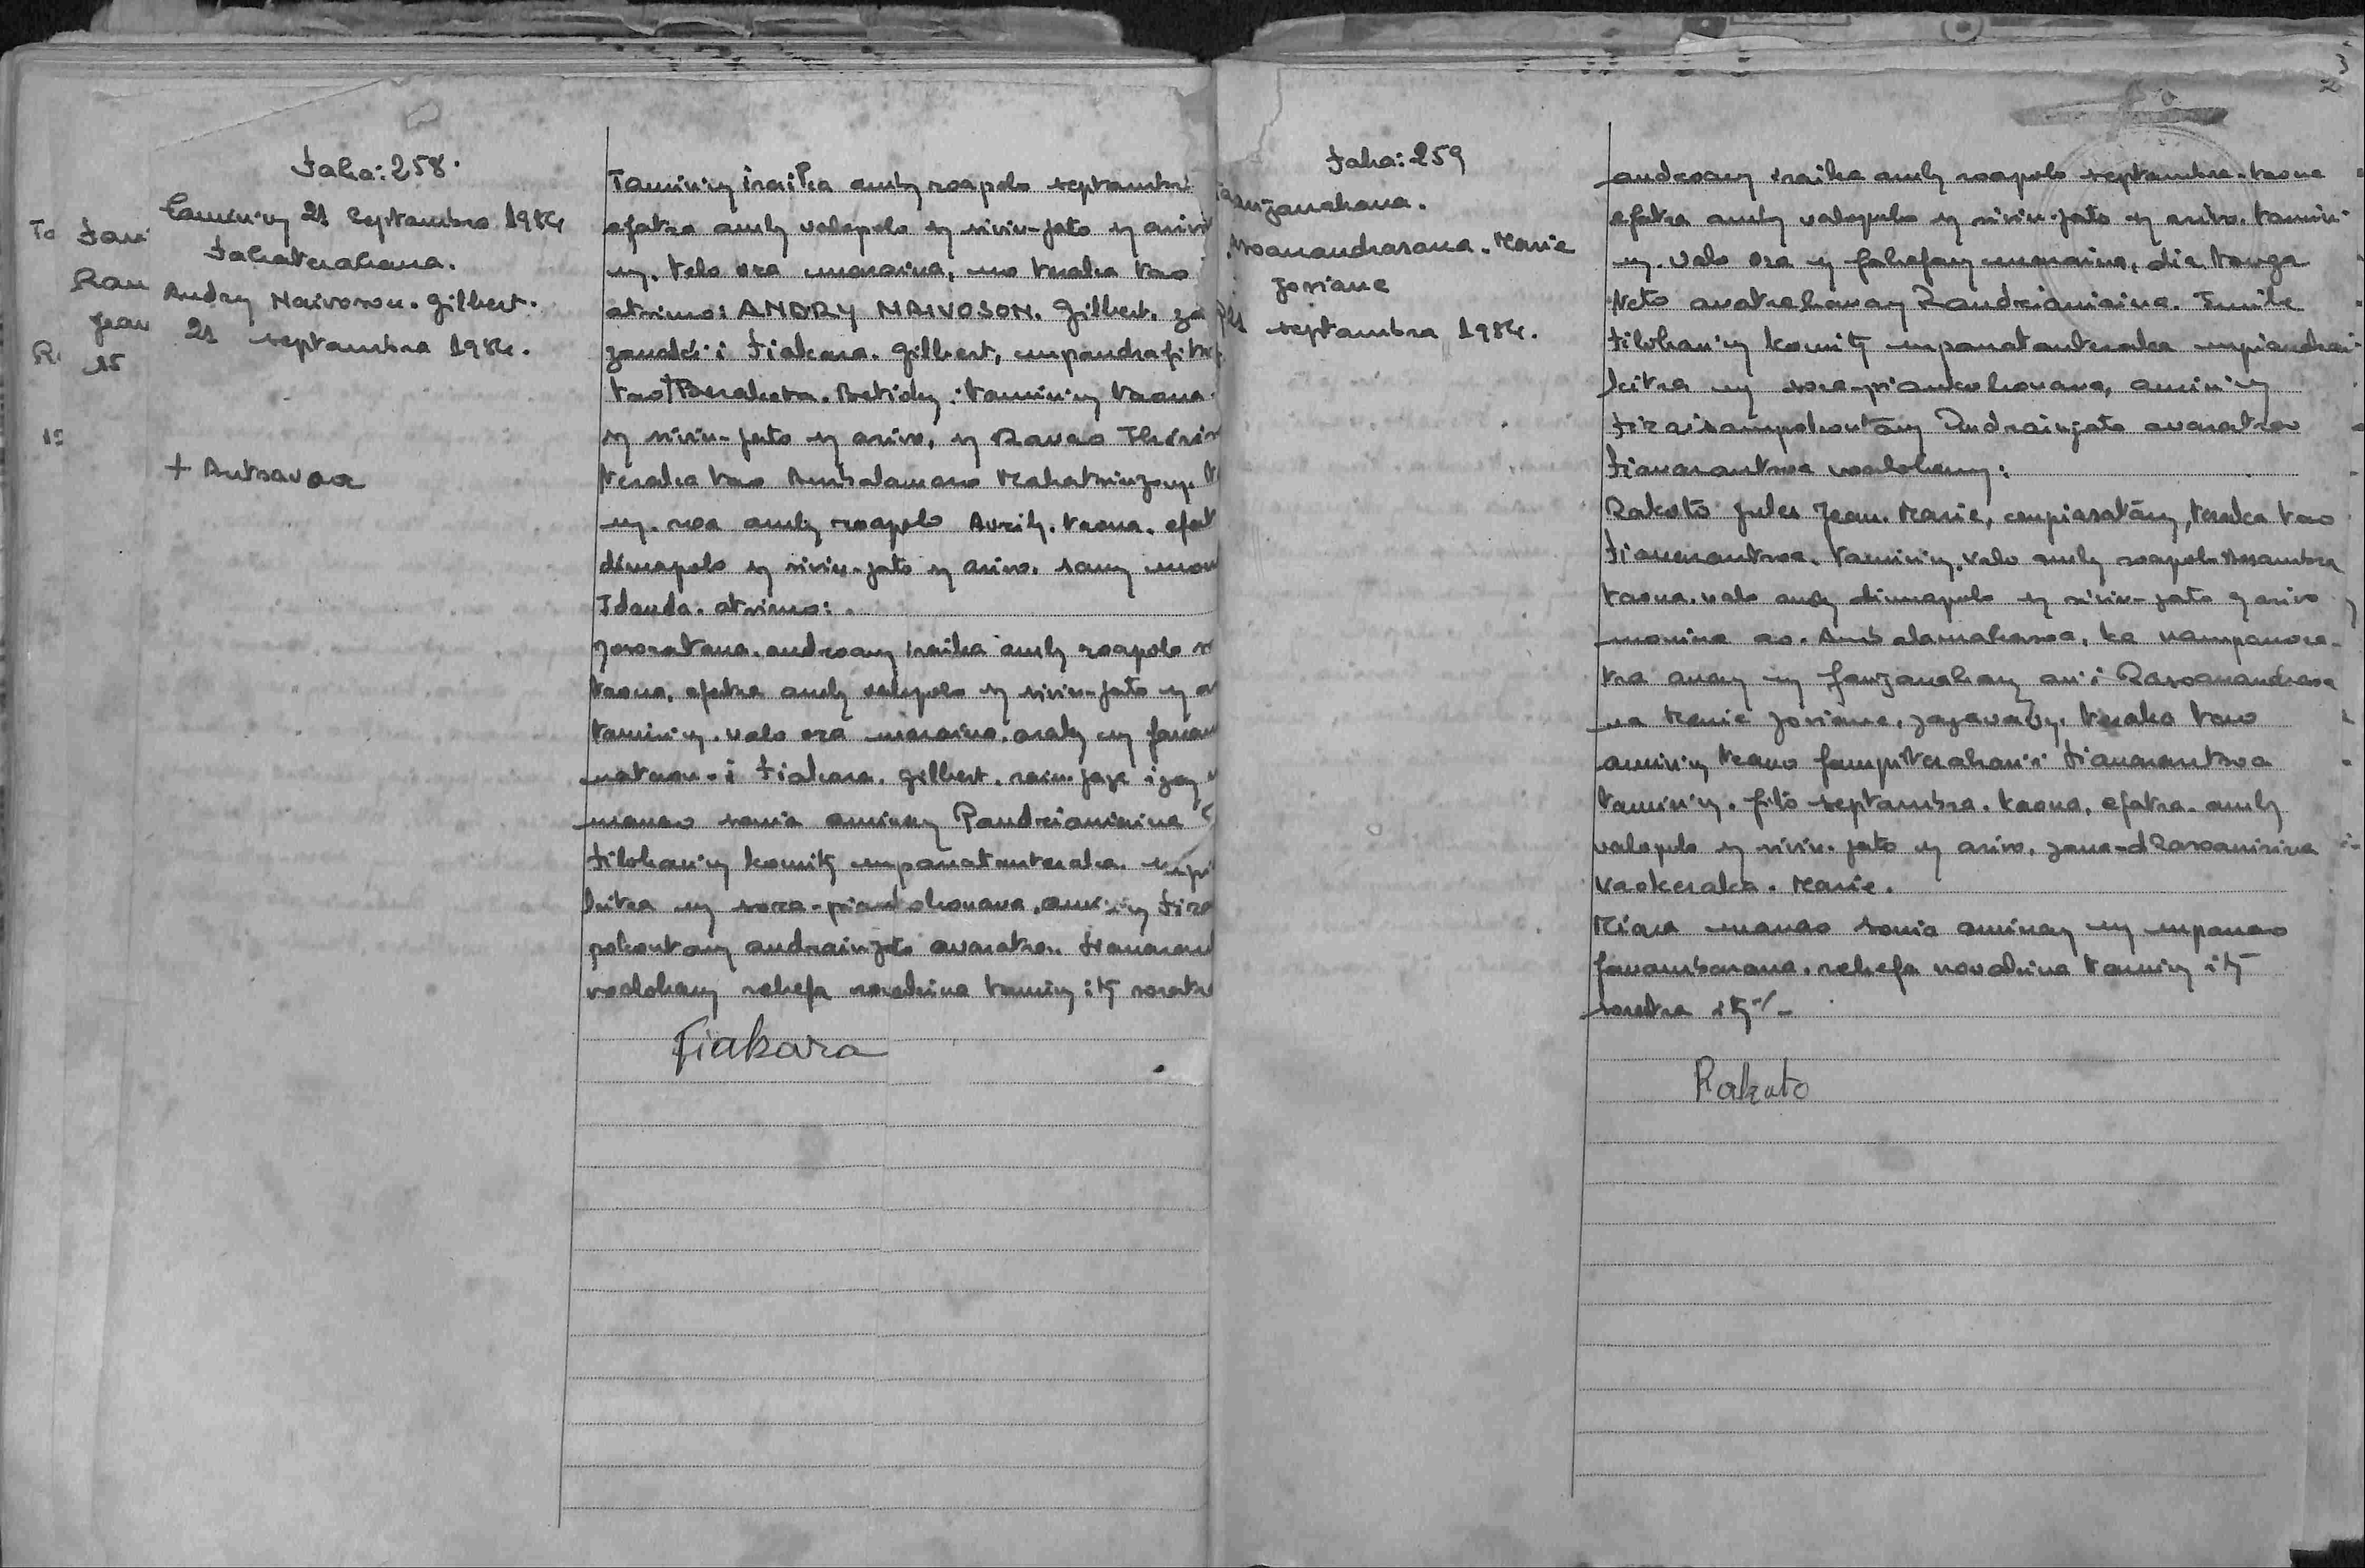 Faha: 258.
Tamin'ny 21 Septambra 1984
Fahaterahana.
Andry Naivoson. Gilbert.
21 septambra 1984.
+ Antsavoa
Tamin'ny iraika amby roapolo septambra
efatra amby valopolo sy sivin-jato sy arivo
ny. telo ora maraina, no teraka tao
atsimo: ANDRY NAIVOSON. Gilbert. za
zanak'i Fiakara. Gilbert, mpandrafitra
tao Beraketa. Betioky. tamin'ny taona
sy sivin-jato sy arivo, sy Ravao
teraka tao Ambalamano Mahatsinjony
ny. roa amby roapolo Avrily. taona. efat
dimapolo sy sivin-jato sy arivo. samy mon
Idanda. atsimo:.
Nosoratana. androany iraika amby roapolo s
taona, efatra amby valopolo sy sivin-jato sy a
tamin'ny. valo ora maraina. araky ny fanam
nataon-i Fiakara. Gilbert. rain-jaza izay
manao sonia aminay Randrianiaina
Filohan'ny komity mpanatanteraka.
kitra ny sora-piankohonana, amin'ny Fira
pokontany andrainjato avaratra. Fianaran
voalohany rehefa novakina taminy ity soratra
Fiakara
Faha: 259
Fanjanahana.
Rasoanandrasana. Marie
Josiane
21 septambra 1984.
androany iraika amby roapolo septambra. taona
efatra amby valopolo sy sivin-jato sy arivo. tamin'
ny. valo ora sy fahefany maraina, dia tonga
teto anatrehanay Randrianiaina. Emile
Filohan'ny komity mpanatanteraka mpiandrai-
kitra ny sora-piankohonana, amin'ny
Firaisampokontany Andrainjato avaratra
Fianarantsoa voalohany:
Rakoto Jules Jean. Marie, mpiasatany, teraka tao
Fianarantsoa. tamin'ny. valo amby roapolo Desambra
taona. valo amby dimapolo sy sivin-jato sy arivo
monina ao. Ambalamahasoa, ka nampanora-
tra anay ny fanjanahany an'i Rasoanandrasa
na Marie Josiane, zazavavy, teraka tao
amin'ny trano fampiterahan'i Fianarantsoa
tamin'ny. fito septambra. taona, efatra. amby
valopolo sy sivin-jato sy arivo, zana-dRasoanirina
Vaoteraka. Marie.
Miara manao sonia aminay ny mpanao
fanambarana, rehefa novakina taminy ity
soratra ity ./-
Rakoto